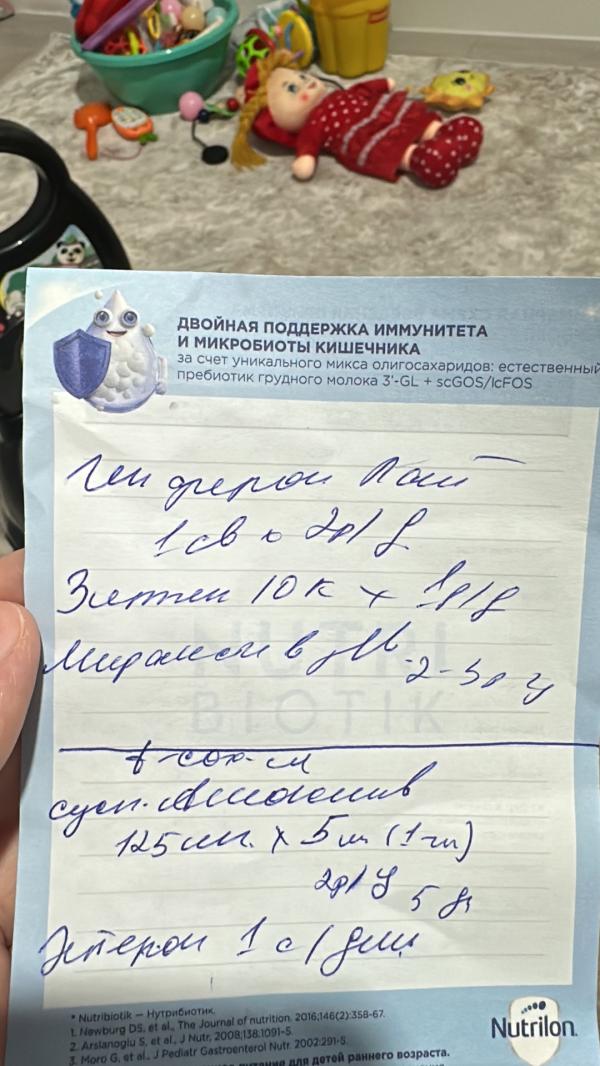 ДВОЙНАЯ ПОДДЕРЖКА ИММУНИТЕТА
И МИКРОБИОТЫ КИШЕЧНИКА
за счет уникального микса олигосахаридов: естественный
пребиотик грудного молока 3'-GL + scGOS/lcFOS
Генферон Лайт
1 св х 2р/д
Зиртек 10 к х 1р/д
в
2-3р
NUTRI
BIOTIK
сусп.
125 мл. х 5 мл (1 чл)
2р/д 5 дн
1 с/день
* Nutribiotik — Нутрибиотик.
1. Newburg DS, et al., The Journal of nutrition. 2016;146(2):358-67.
2. Arslanoglu S, et al., J Nutr, 2008;138:1091-5.
3. Moro G, et al., J Pediatr Gastroenterol Nutr. 2002:291-5.
питание для детей раннего возраста.
Nutrilon.